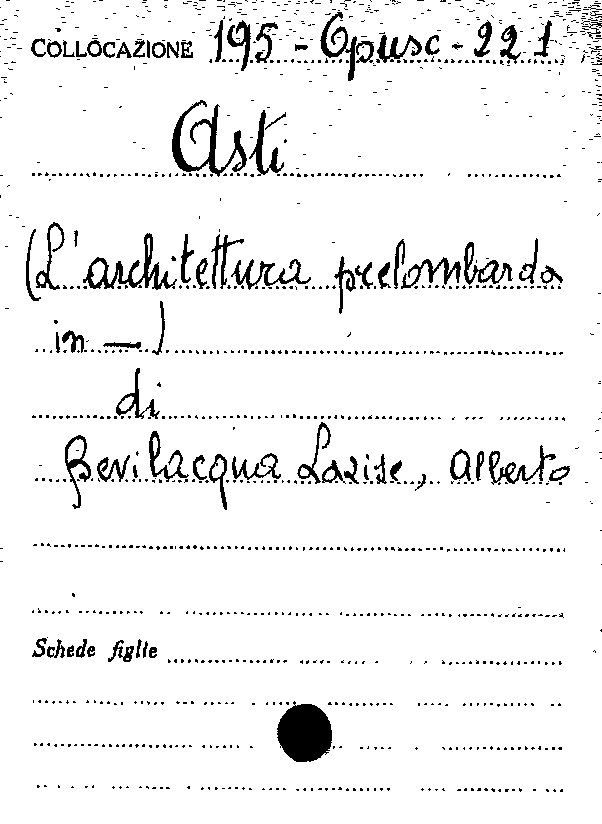 COLLOCAZIONE 195-Opusc-221
Asti
(L'architettura prelombarda
in —)
di
Bevilacqua Lazise, Alberto
Schede figlie